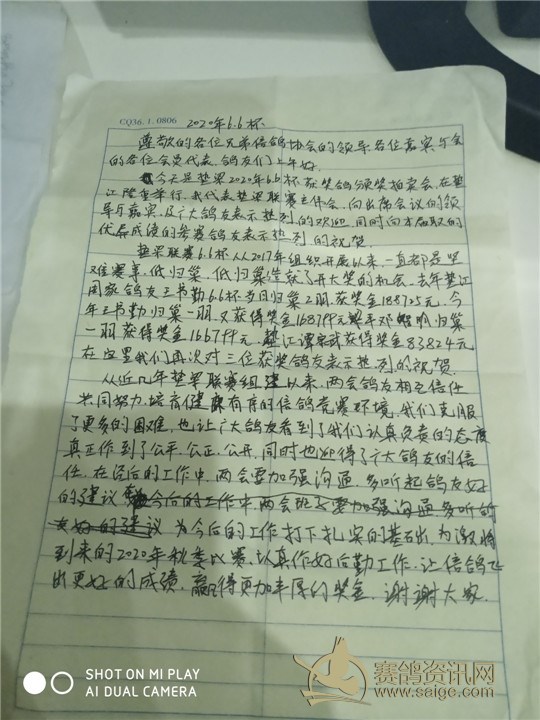 CQ36.1.0806 2020年6.6杯
尊敬的各位兄弟信鸽协会的领导、各位嘉宾、与会
的各位会员代表、鸽友们上午好
今天是垫梁2020年6.6杯获奖鸽颁奖拍卖会,在垫
江隆重举行,我代表垫梁联赛主体会,向出席会议的领
导与嘉宾,及广大鸽友表示热烈的欢迎,同时向本届取的
优异成绩的参赛鸽友表示热烈的祝贺
垫梁联赛6.6杯从2017年组织开展以来,一直都是
难赛事,低归巢,低归巢造就了开大奖的机会,去年垫江
周家鸽友王书勤6.6杯当日归巢2羽,获奖金188725元,今
年王书勤归巢一羽,又获得奖金168799元,邓 归巢
一羽获得奖金166799元,垫江谭 获得奖金83824元
在这里我们再次对三位获奖鸽友表示热烈的祝贺
从近几年垫梁联赛组建以来,两会鸽友相互信任
共同努力,培育健康有序的信鸽竞赛环境,我们克服
了更多的困难,也让广大鸽友看到了我们认真负责的态度
真正作到了公平、公正、公开,同时也 得了广大鸽友的信
任,在泾后的工作中,两会要加强沟通,多听起鸽友好
的建议 今后的工作中,两会 要加强沟通,多听鸽
友好的建议 为今后的工作打下扎实的基础,为激将
到来的2020年秋季比赛,认真作好后勤工作,让信鸽飞
出更好的成绩,赢得更加丰厚的奖金,谢谢大家
SHOT ON MI PLAY
AI DUAL CAMERA
赛鸽资讯网
www.saige.com